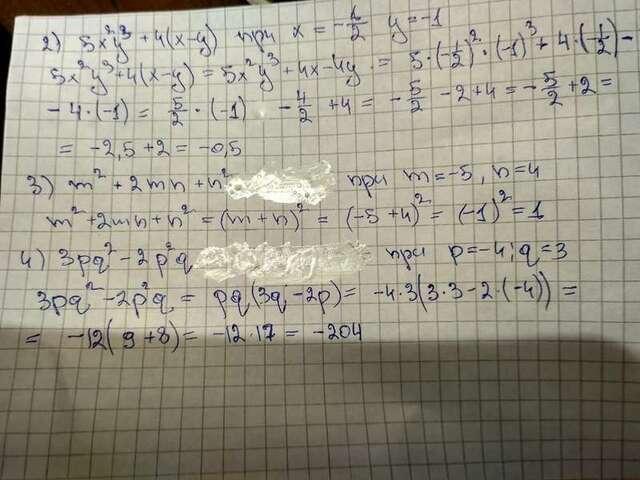 2) 5x²y³ + 4(x-y) при x = -1/2 y = -1
5x²y³+4(x-y) = 5x²y³ + 4x - 4y = 5·(-1/2)²·(-1)³ + 4·(-1/2) -
- 4·(-1) = 5/2·(-1) - 4/2 + 4 = -5/2 - 2 + 4 = -5/2 + 2 =
= -2,5 + 2 = -0,5
3) m² + 2mn + n² при m = -5, n = 4
m² + 2mn + n² = (m+n)² = (-5+4)² = (-1)² = 1
4) 3pq² - 2p²q при p = -4; q = 3
3pq² - 2p²q = pq(3q - 2p) = -4·3(3·3 - 2·(-4)) =
= -12(9+8) = -12·17 = -204